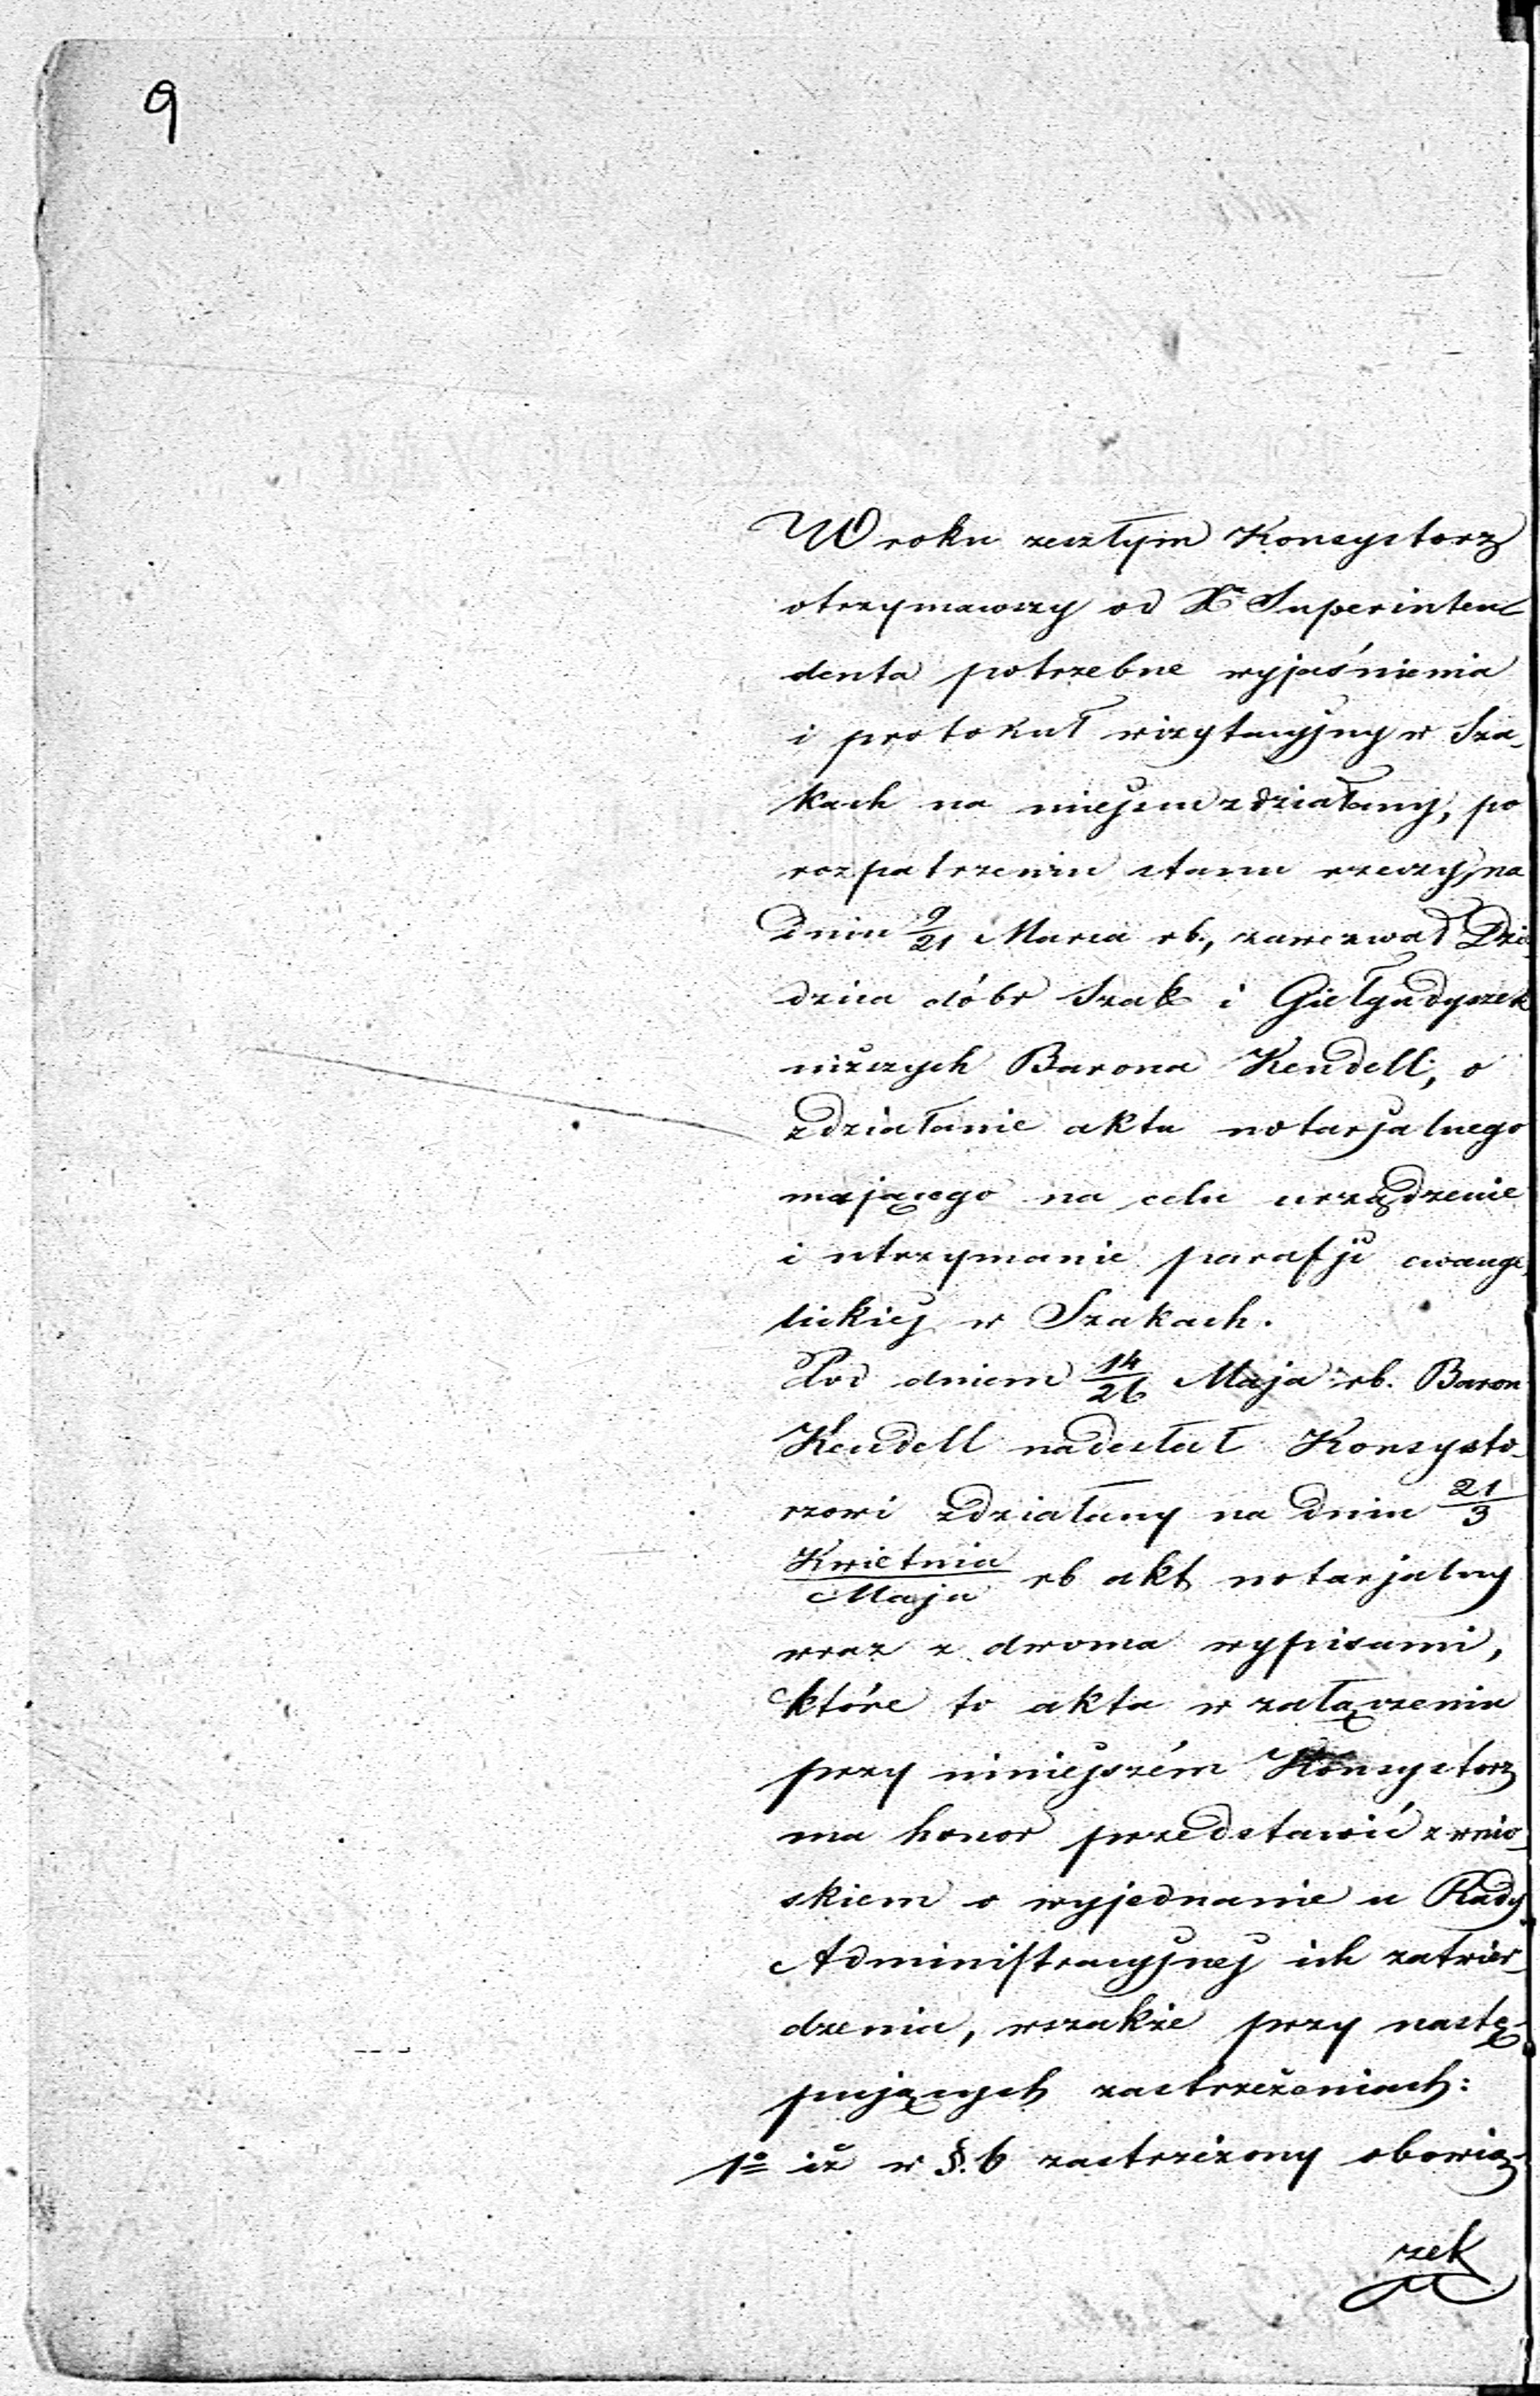 9
W roku zeszłym Konsystorz
otrzymawszy od X. Superinten-
denta potrzebne wyjaśnienia
i protokuł wizytacyjny w Sza-
kach na miejscu zdziałany, po
rozpatrzeniu stanu rzeczy, na
dniu 9/21 Marca rb., zawezwał Dzie-
dzica dóbr Szak i Giełgudyszek
niższych Barona Keudell, o
zdziałanie aktu notarjalnego
mającego na celu urządzenie
i utrzymanie parafji ewange-
lickiej w Szakach.
Pod dniem 14/26 Maja rb. Baron
Keudell nadesłał Konsysto-
rzowi zdziałany na dniu 21/3
Kwietnia/Maja rb akt notarjalny
wraz z dwoma wypisami,
które to akta w załączeniu
przy niniejszém Konsystorz
ma honor przedstawić z wnio-
skiem o wyjednanie u Rady
Administracyjnej ich zatwier-
dzenia, wszakże przy nastę-
pujących zastrzeżeniach:
1o iż w §. 6 zastrzeżony obowią-
zek